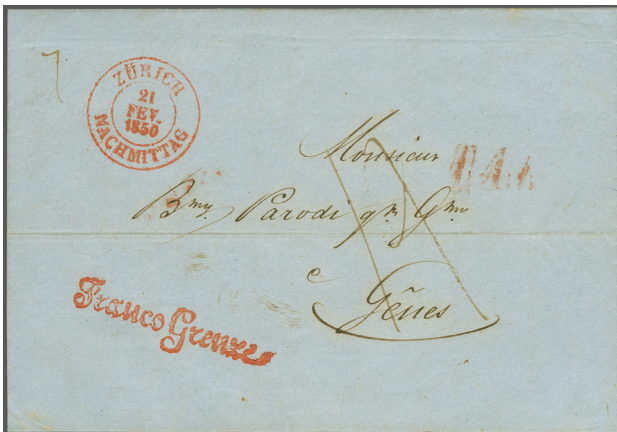 ZÜRICH
21
FEV.
1850
NACHMITTAG
Monsieur
Bmy Parodi qm Gmo
Gênes
Franco Grenze